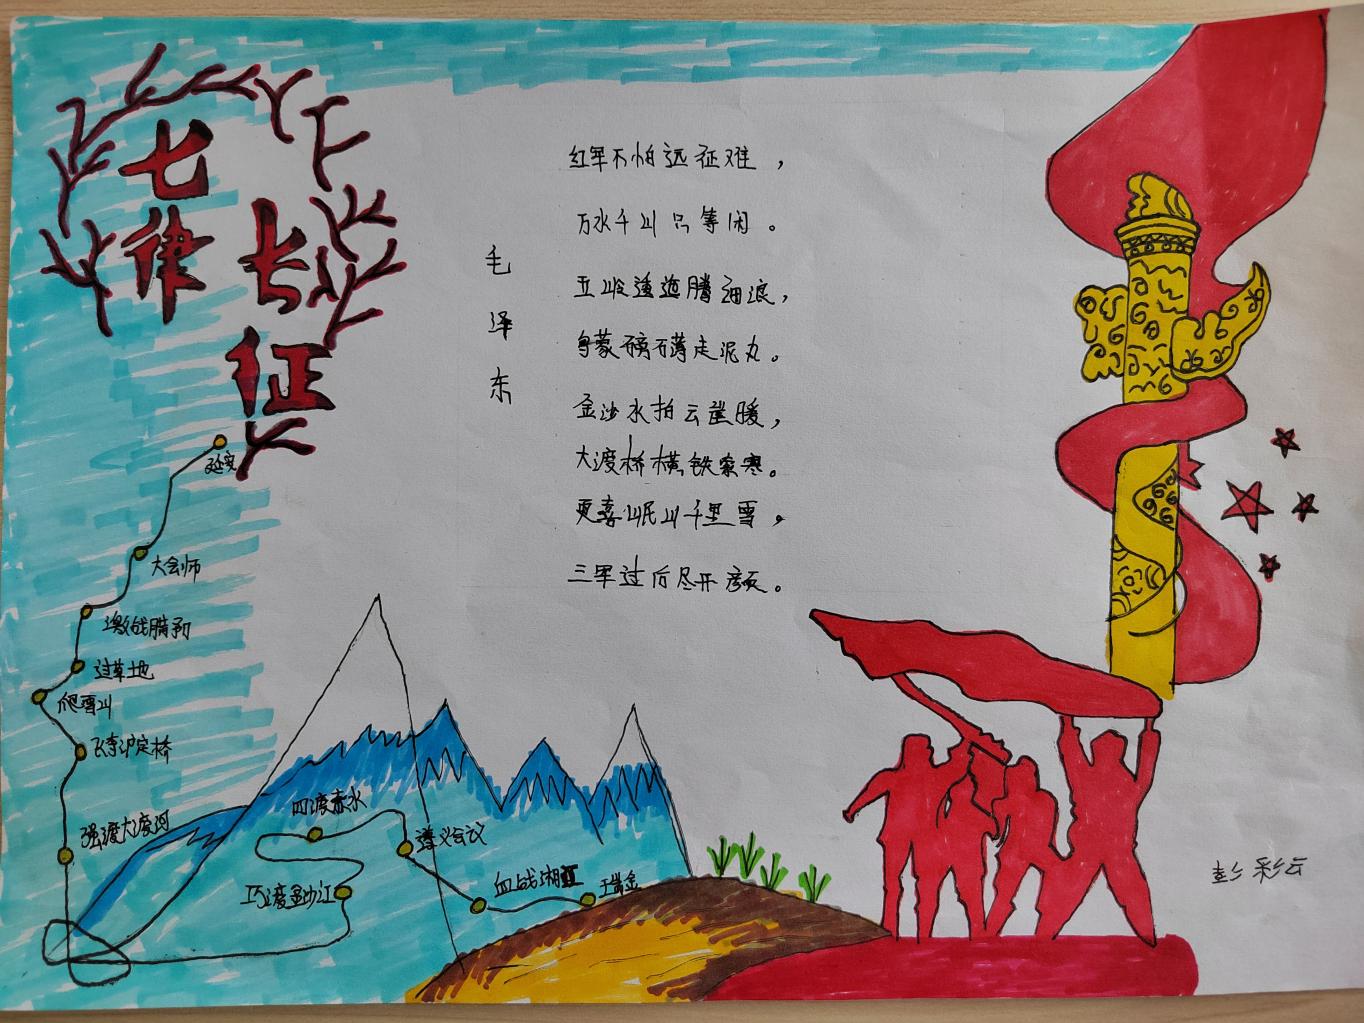 七律
长征
毛泽东
红军不怕远征难，
万水千山只等闲。
五岭逶迤腾细浪，
乌蒙磅礴走泥丸。
金沙水拍云崖暖，
大渡桥横铁索寒。
更喜岷山千里雪，
三军过后尽开颜。
延安
大会师
激战腊子口
过草地
爬雪山
飞夺泸定桥
强渡大渡河
四渡赤水
遵义会议
巧渡金沙江
血战湘江
瑞金
彭彩云